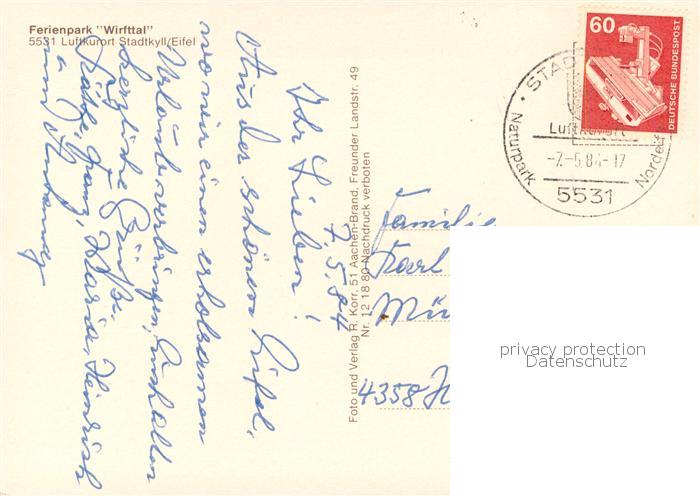 Ferienpark "Wirfttal"
5531 Luftkurort Stadtkyll/Eifel
7.5.84
Ihr Lieben!
Aus der schönen Eifel,
wo wir einen erholsamen
Urlaub verbringen, euch allen
herzliche Grüße.
Käthe, Franz, Maria, Heinrich
und
Foto und Verlag R. Korr. 51 Aachen-Brand, Freunder Landstr. 49
Nr. 12 18 80 Nachdruck verboten
60
DEUTSCHE BUNDESPOST
STAD
Luftkurort
-7.-5.84-17
5531
Naturpark
Nordei
Familie
Karl
Mü
4358 H
privacy protection
Datenschutz